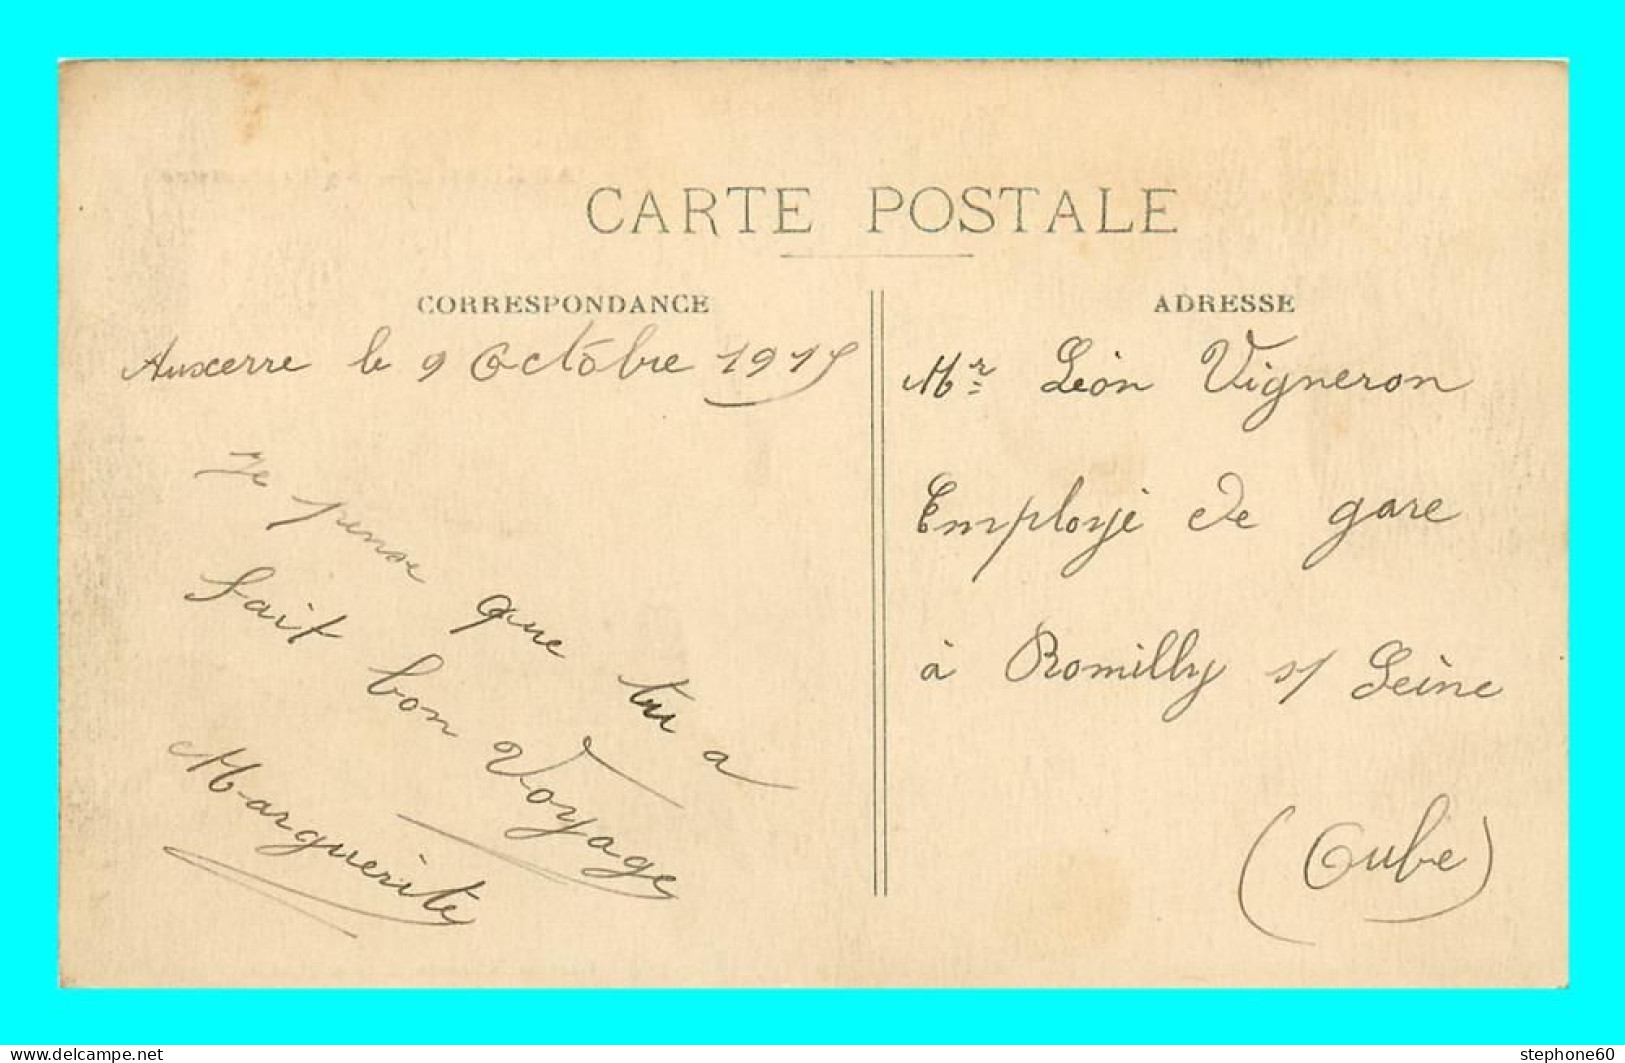 CARTE POSTALE
CORRESPONDANCE
Auxerre le 9 Octobre 1915
Je pense que tu a
fait bon Voyage
Marguerite
ADRESSE
Mr Léon Vigneron
Employé de gare
à Romilly s/ Seine
(Aube)
www.delcampe.net
stephone60